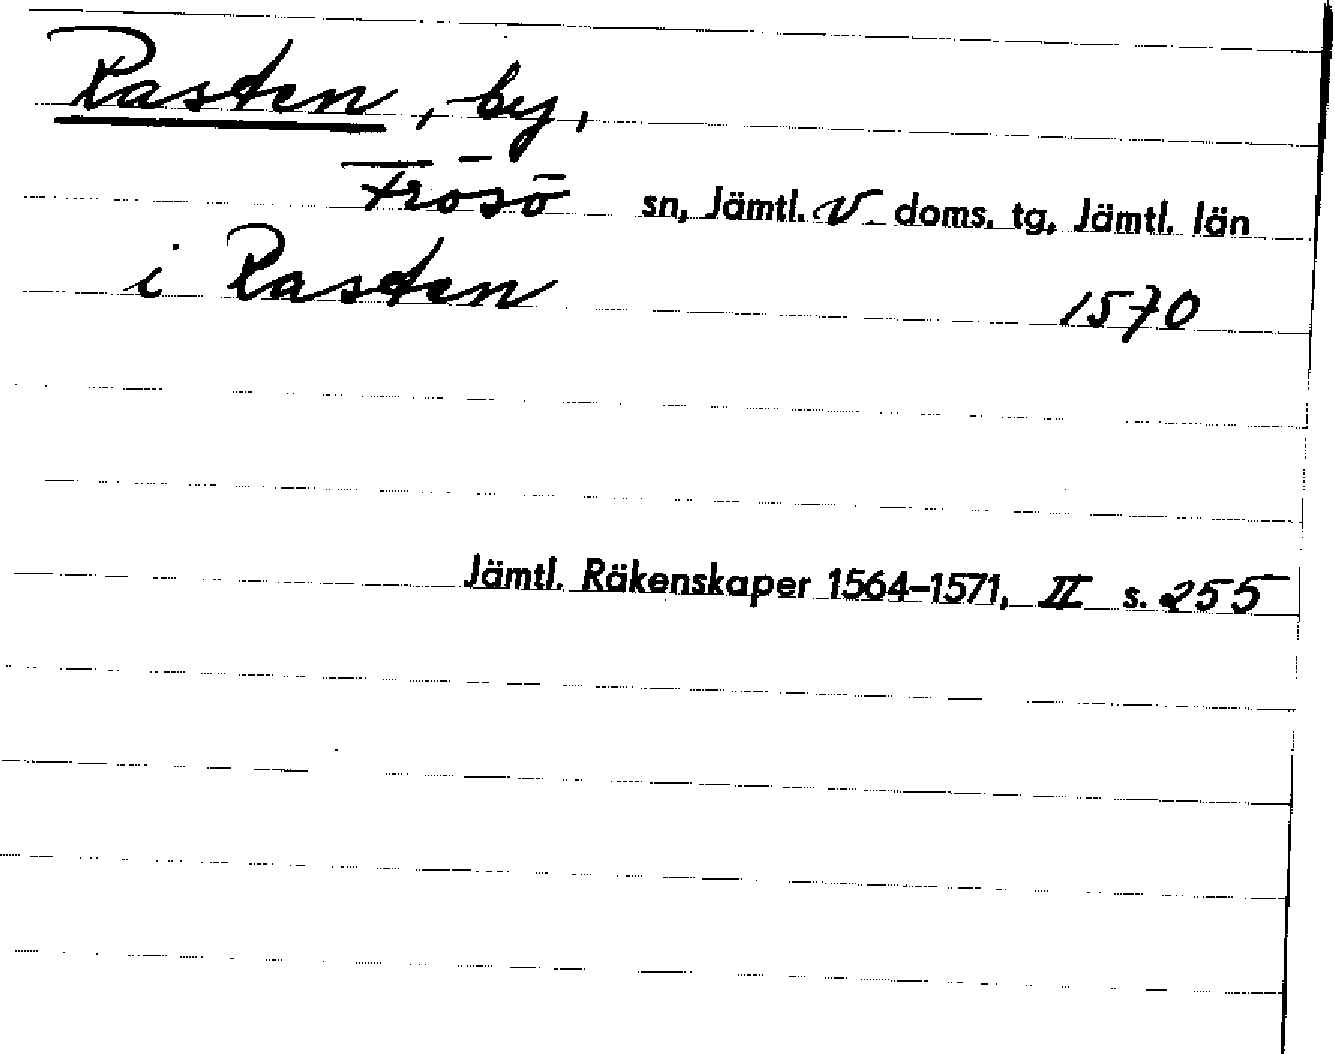 Rasten, by,
Frösö sn, Jämtl. V. doms. tg, Jämtl. län
i Rasten 1570
Jämtl. Räkenskaper 1564–1571, II s. 255